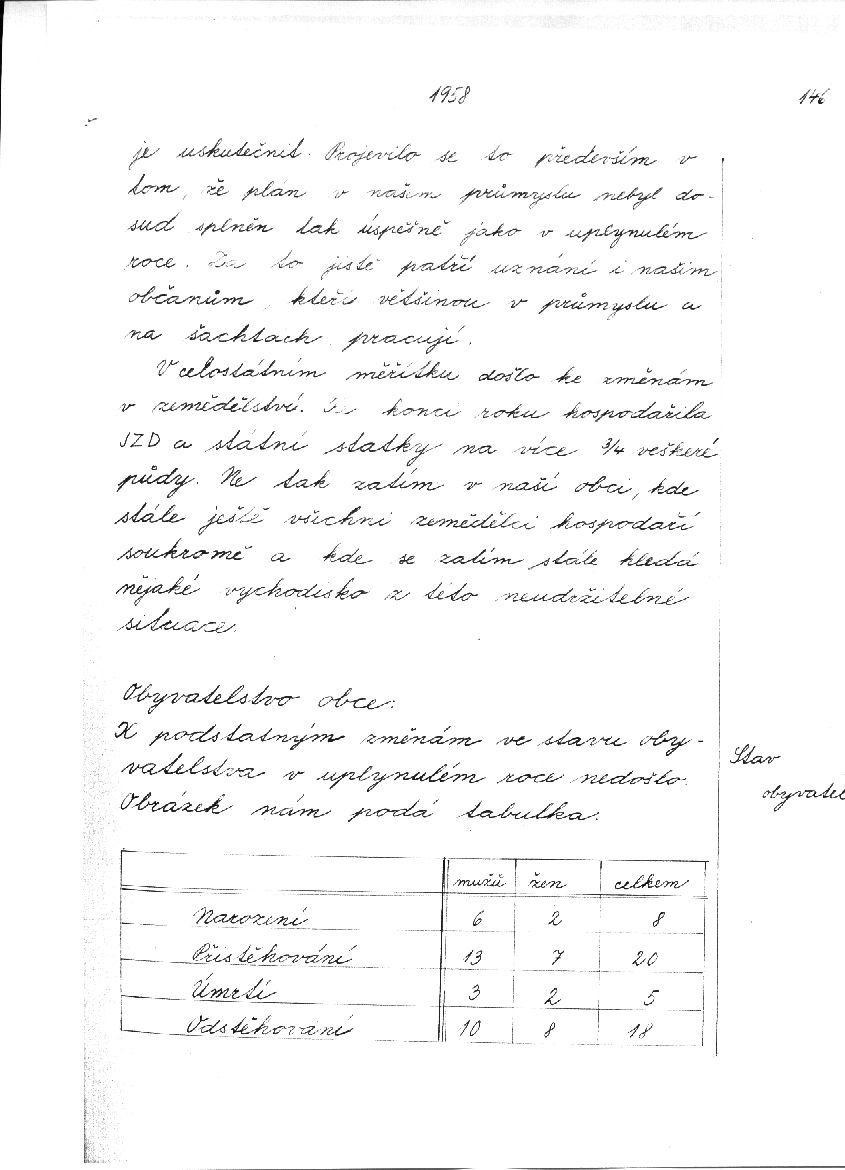 1958
146
je uskutečnit. Projevilo se to především v
tom, že plán v našem průmyslu nebyl do-
sud splněn tak úspěšně jako v uplynulém
roce. Za to jistě patří uznání i našim
občanům, kteří většinou v průmyslu a
na šachtách pracují.
V celostátním měřítku došlo ke změnám
v zemědělství. konci roku hospodařila
JZD a státní statky na více 3/4 veškeré
půdy. Ne tak zatím v naší obci, kde
stále ještě všichni zemědělci hospodaří
soukromě a kde se zatím stále hledá
nějaké vychodisko z této neudržitelné
situace.
Obyvatelstvo obce:
K podstatným změnám ve stavu oby-
vatelstva v uplynulém roce nedošlo.
Obrázek nám podá tabulka:
Stav
obyvatel
mužů žen celkem
Narození 6 2 8
Přistěhování 13 7 20
Úmrtí 3 2 5
Odstěhovaní 10 8 18